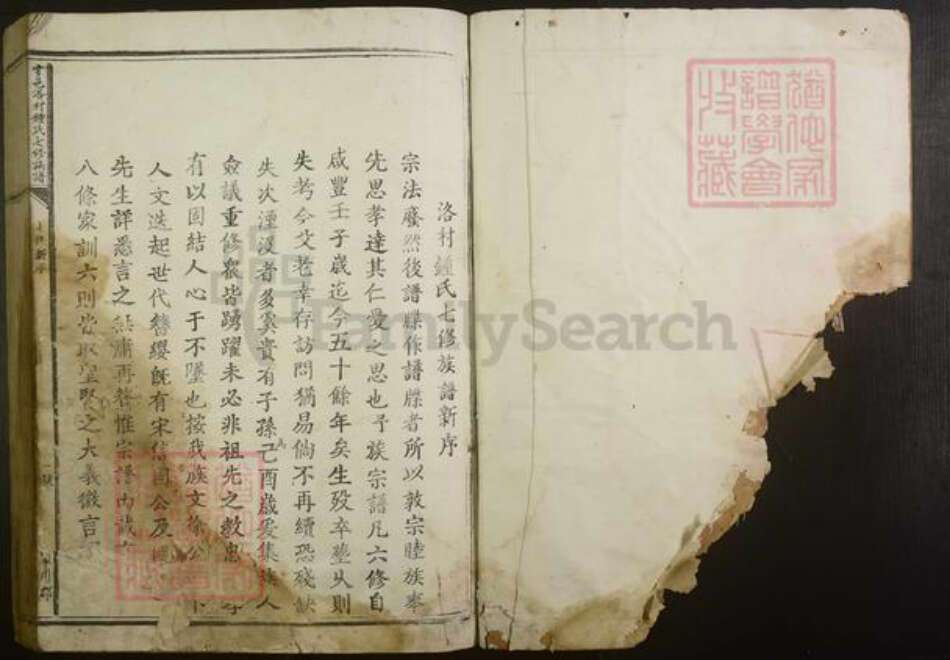 洛村鍾氏七修族譜新序
宗法廢然後譜牒作譜牒者所以敦宗睦族奉
先思孝達其仁愛之思也予族宗譜凡六修自
咸豐壬子歲迄今五十餘年矣生歿卒塟乆則
失考今父老幸存訪問猶易倘不再續恐殘缺
失次湮沒者多矣貴有子孫己酉歲爰集族人
僉議重修衆皆踴躍未必非祖先之教忠
有以固結人心于不墜也按我族文徐公
人文迭起世代簪纓旣有宋信國公及
先生詳悉言之無庸再贅惟宗譜內載
八條家訓六則皆取聖賢之大義微言
洛村鍾氏七修族譜
新序
譜學會
收藏
FamilySearch